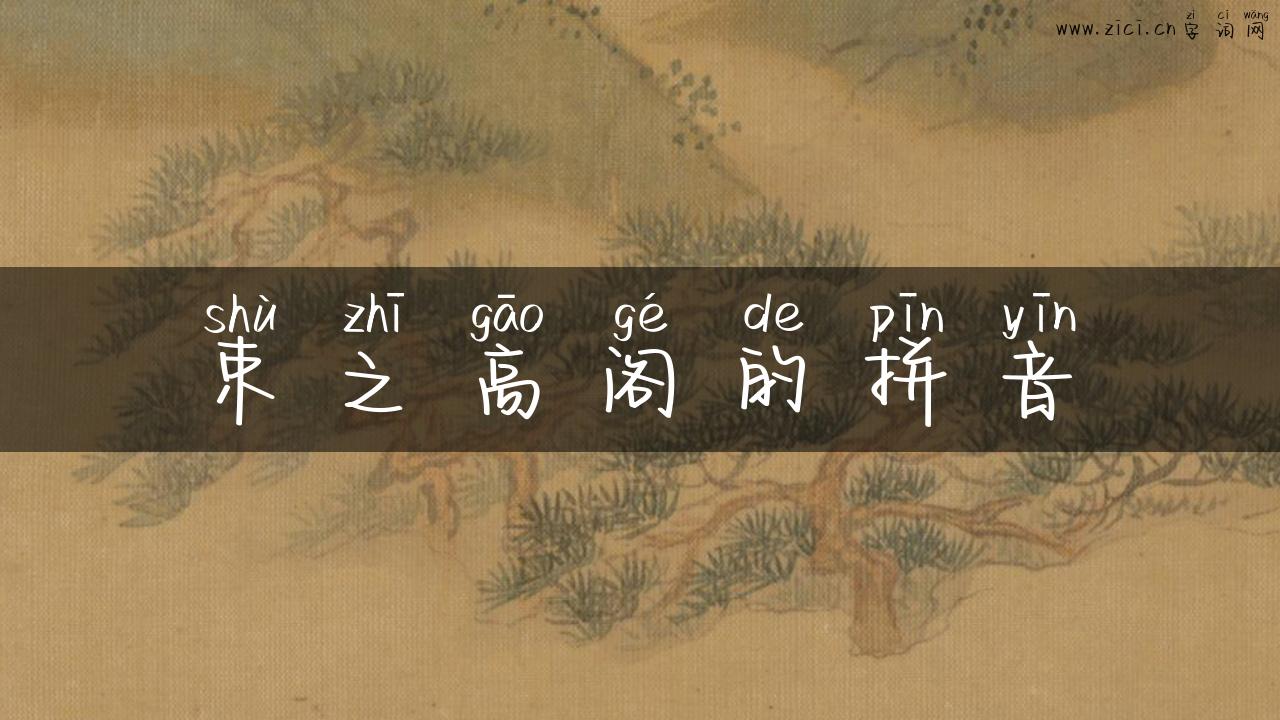 zì cí wǎng
www.zici.cn 字词网
shù zhī gāo gé de pīn yīn
束之高阁的拼音